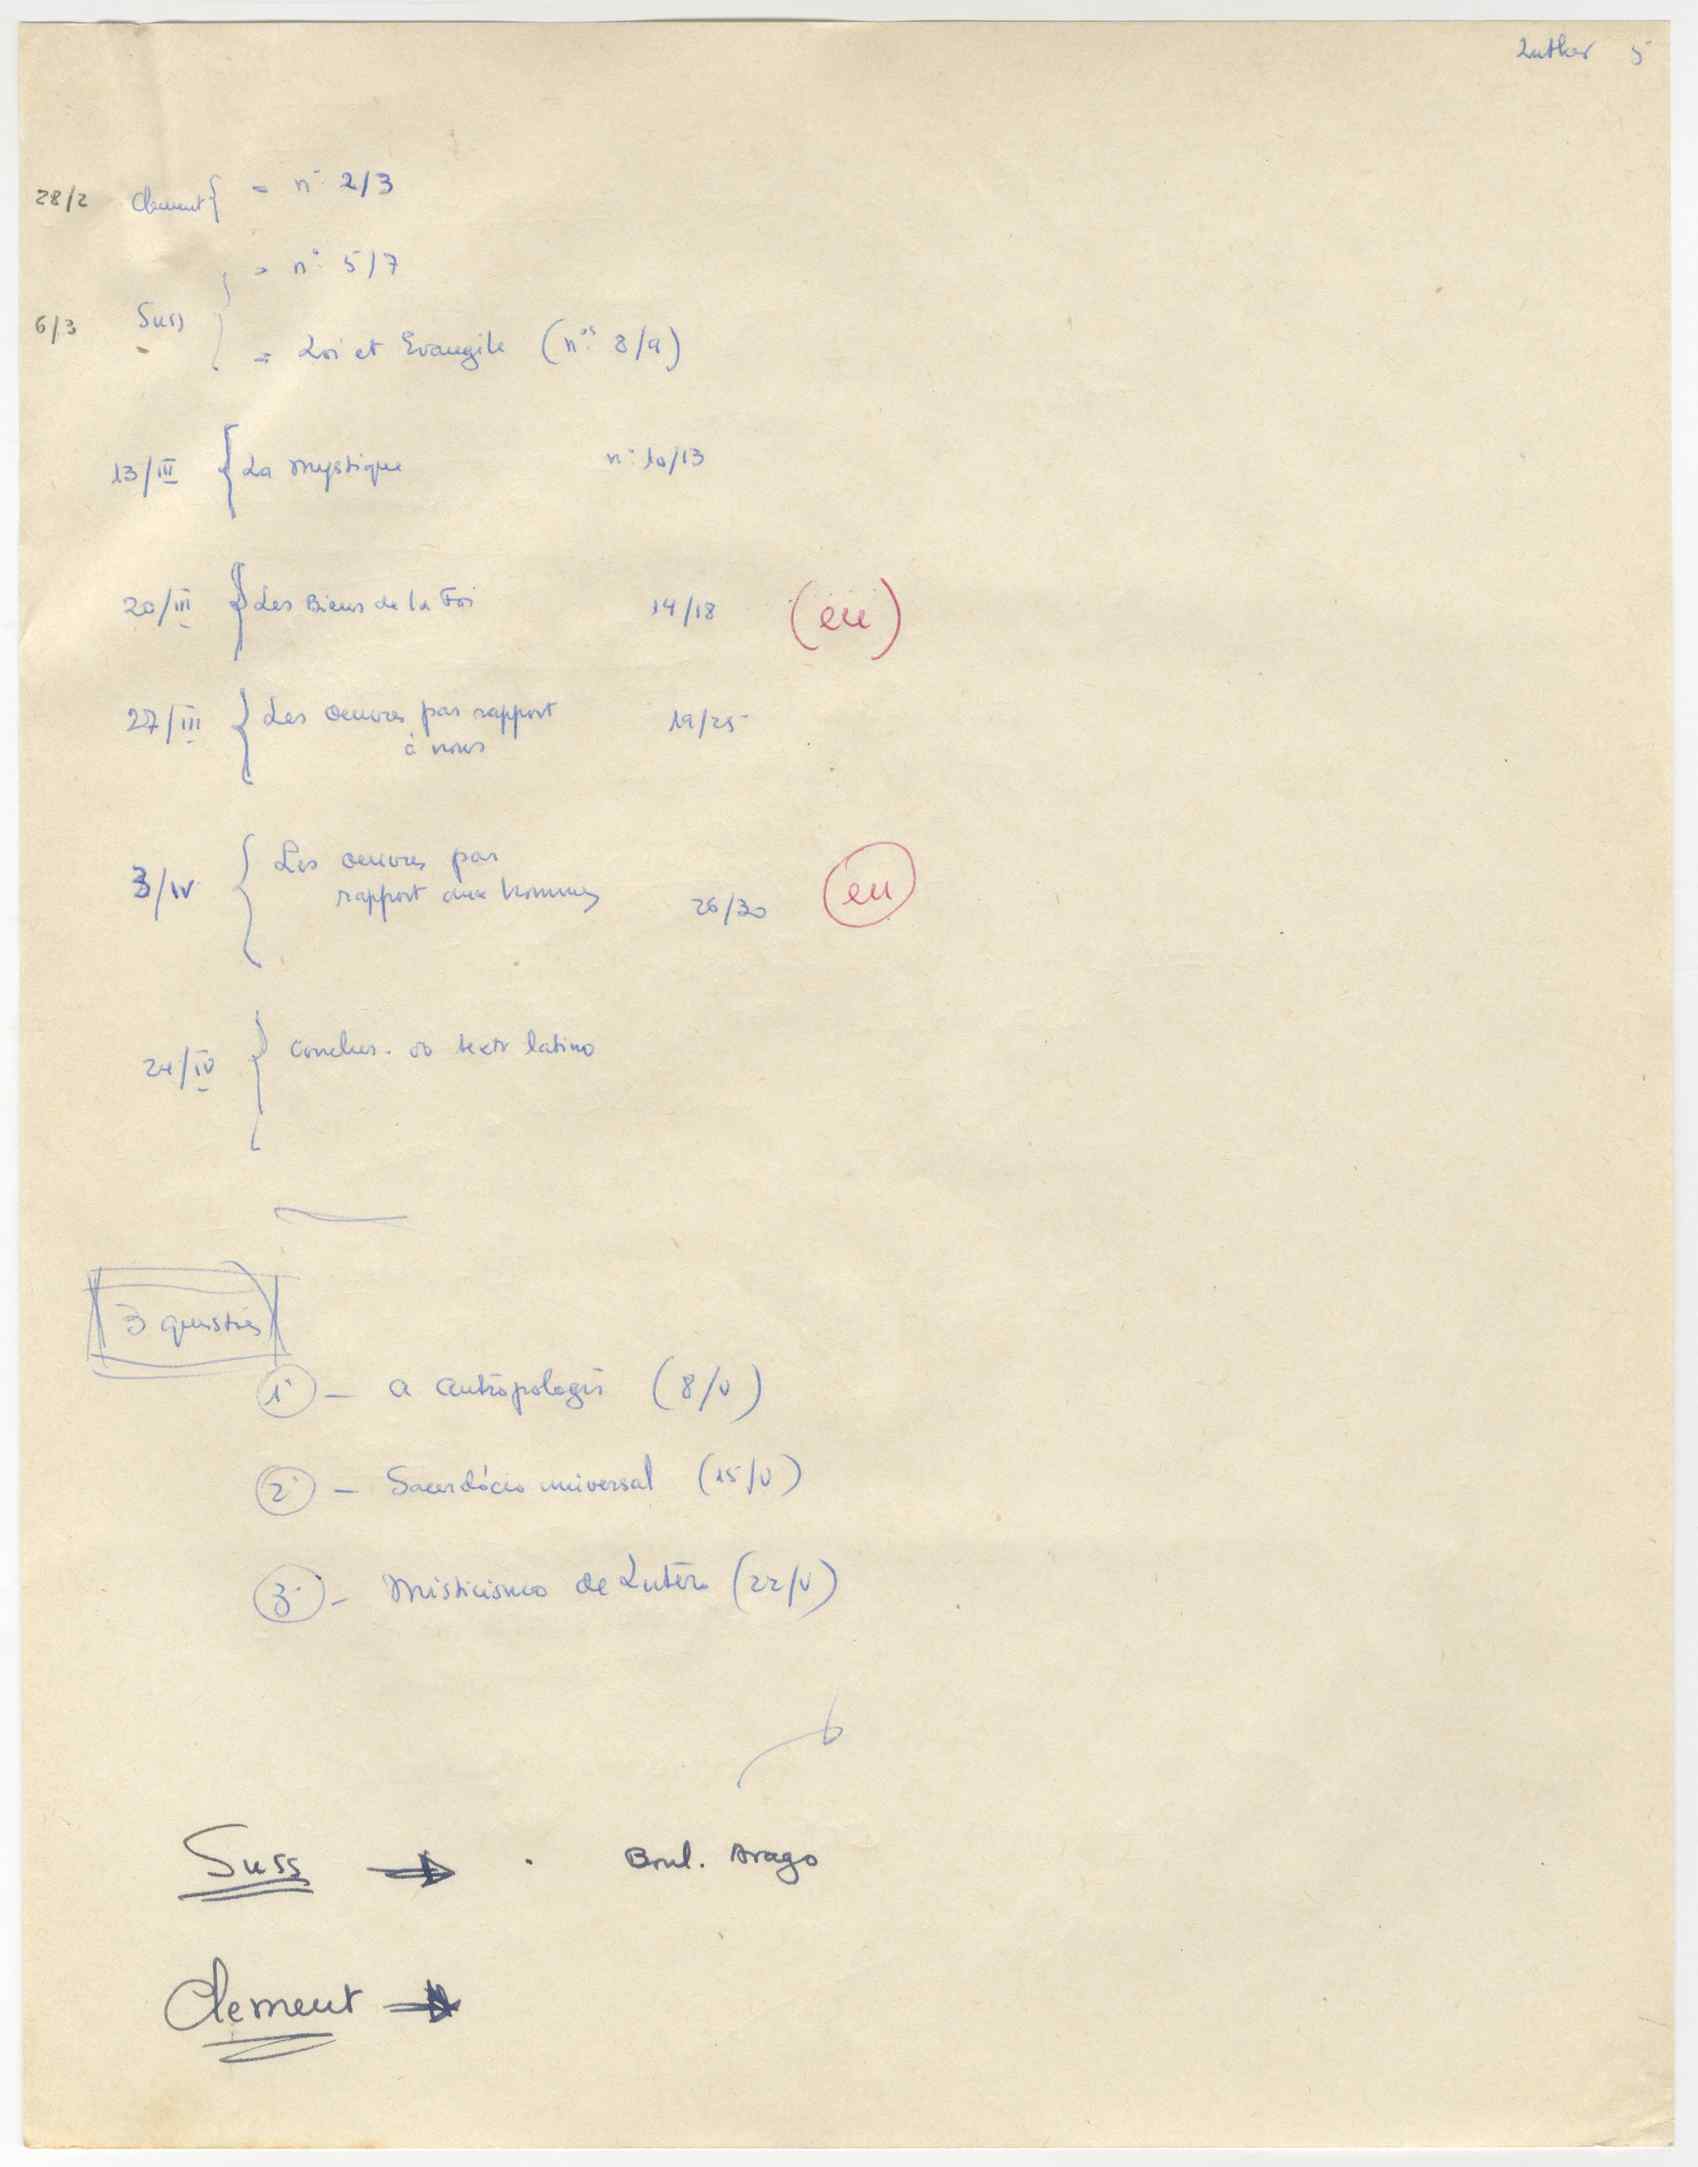 Luther 5
28/2 Clement { = nº 2/3
= nº 5/7
6/3 Suss {
= Loi et Evangile (nos 8/9)
13/III { La mystique nº 10/13
20/III { Les Biens de la Foi 14/18 (eu)
27/III { Les oeuvres par rapport 19/25
à nous
Les oeuvres par
3/IV { rapport aux hommes 26/30 eu
24/IV { Conclus. texto latino
3 questões
1º - a antropologia (8/V)
2º - Sacerdócio universal (15/V)
3º - Misticismo de Lutero (22/V)
Suss → . Boul. Arago
Clement →